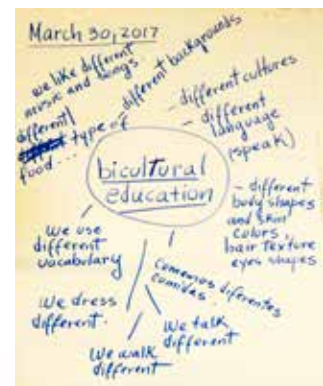 March 30, 2017
we like different
music and songs
- different backgrounds
different
type of
food...
- different cultures
- different
language
(speak)
bicultural
education
- different
body shapes
and skin
colors,
hair texture
eyes shapes
We use
different
vocabulary
Comemos diferentes
comidas.
We dress
different.
We talk
different
We walk
different